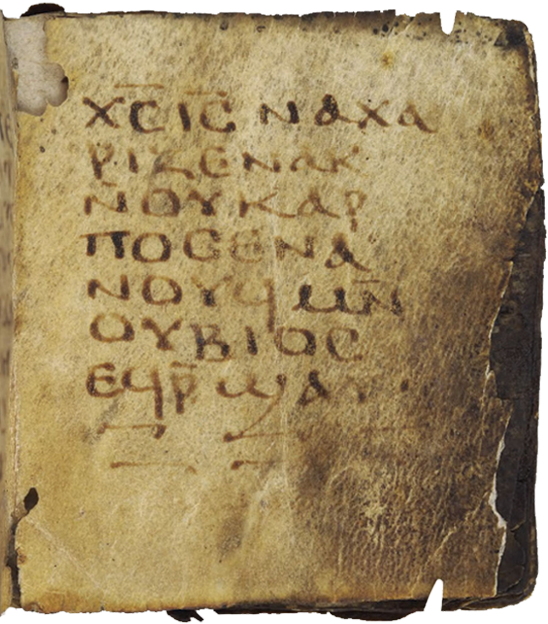 ⲭ̅ⲥ̅ ⲓ̅ⲥ̅ ⲛⲁⲭⲁ
ⲣⲓⲍⲉⲛⲁⲕ
ⲛⲟⲩⲕⲁⲣ
ⲡⲟⲥⲉⲛⲁ
ⲛⲟⲩϥⲙⲛ̄
ⲟⲩⲃⲓⲟⲥ
ⲉϥⲣ̄ϣⲁⲩ